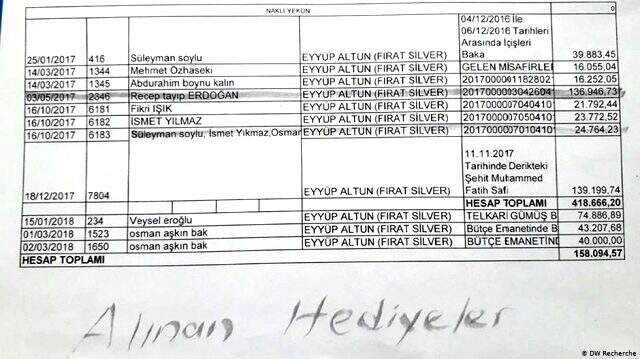 NAKLİ YEKÜN 0
04/12/2016 İle
06/12/2016 Tarihleri
Arasında İçişleri
25/01/2017 416 Süleyman soylu EYYÜP ALTUN (FIRAT SILVER) Baka 39.883,45
14/03/2017 1344 Mehmet Ozhaseki EYYÜP ALTUN (FIRAT SILVER) GELEN MİSAFİRLEI 16.055,04
14/03/2017 1345 Abdurahim boynu kalın EYYÜP ALTUN (FIRAT SILVER) 16.252,05
03/05/2017 2346 Recep tayıp ERDOĞAN EYYÜP ALTUN (FIRAT SILVER) 136.946,73
16/10/2017 6181 Fikri IŞIK EYYÜP ALTUN (FIRAT SILVER) 21.792,44
16/10/2017 6182 İSMET YILMAZ EYYÜP ALTUN (FIRAT SILVER) 23.772,52
16/10/2017 6183 Süleyman soylu, İsmet Yıkmaz,Osmar EYYÜP ALTUN (FIRAT SILVER) 24.764,23
11.11.2017
Tarihinde Derikteki
Şehit Muhammed
18/12/2017 7804 EYYÜP ALTUN (FIRAT SILVER) Fatih Safi 139.199,74
HESAP TOPLAMI 418.666,20
15/01/2018 234 Veysel eroğlu EYYÜP ALTUN (FIRAT SILVER) TELKARİ GÜMÜŞ B 74.886,89
01/03/2018 1523 osman aşkın bak EYYÜP ALTUN (FIRAT SILVER) Bütçe Emanetinde B 43.207,68
02/03/2018 1650 osman aşkın bak EYYÜP ALTUN (FIRAT SILVER) BÜTÇE EMANETİND 40.000,00
HESAP TOPLAMI 158.094,57
Alınan Hediyeler
© DW Recherche